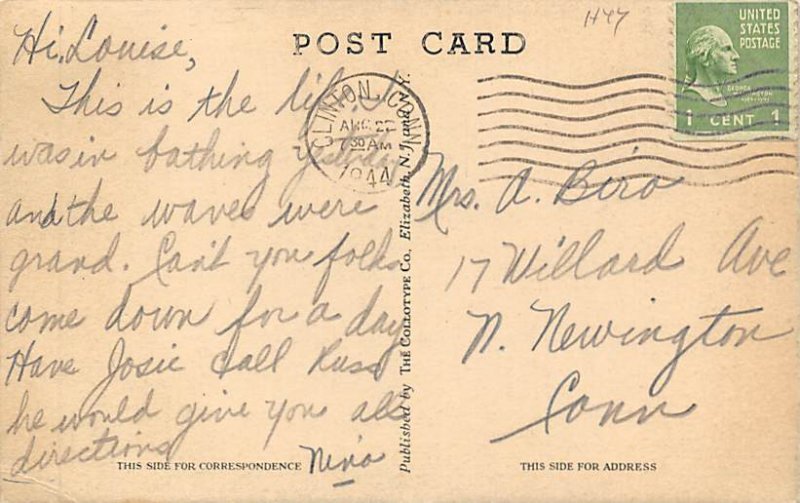 H47
POST CARD
UNITED
STATES
POSTAGE
1 CENT 1
CLINTON, CONN.
AUG 22
7 30 AM
1944
Hi, Louise,
This is the life. I
was in bathing yesterday
and the waves were
grand. Can't you folks
come down for a day
Have Josie call Russ
he would give you all
directions
Nina
THIS SIDE FOR CORRESPONDENCE
Published by THE COLLOTYPE CO. Elizabeth, N. J. and N. Y.
Mrs. A. Biro
17 Willard Ave
N. Newington
Conn
THIS SIDE FOR ADDRESS